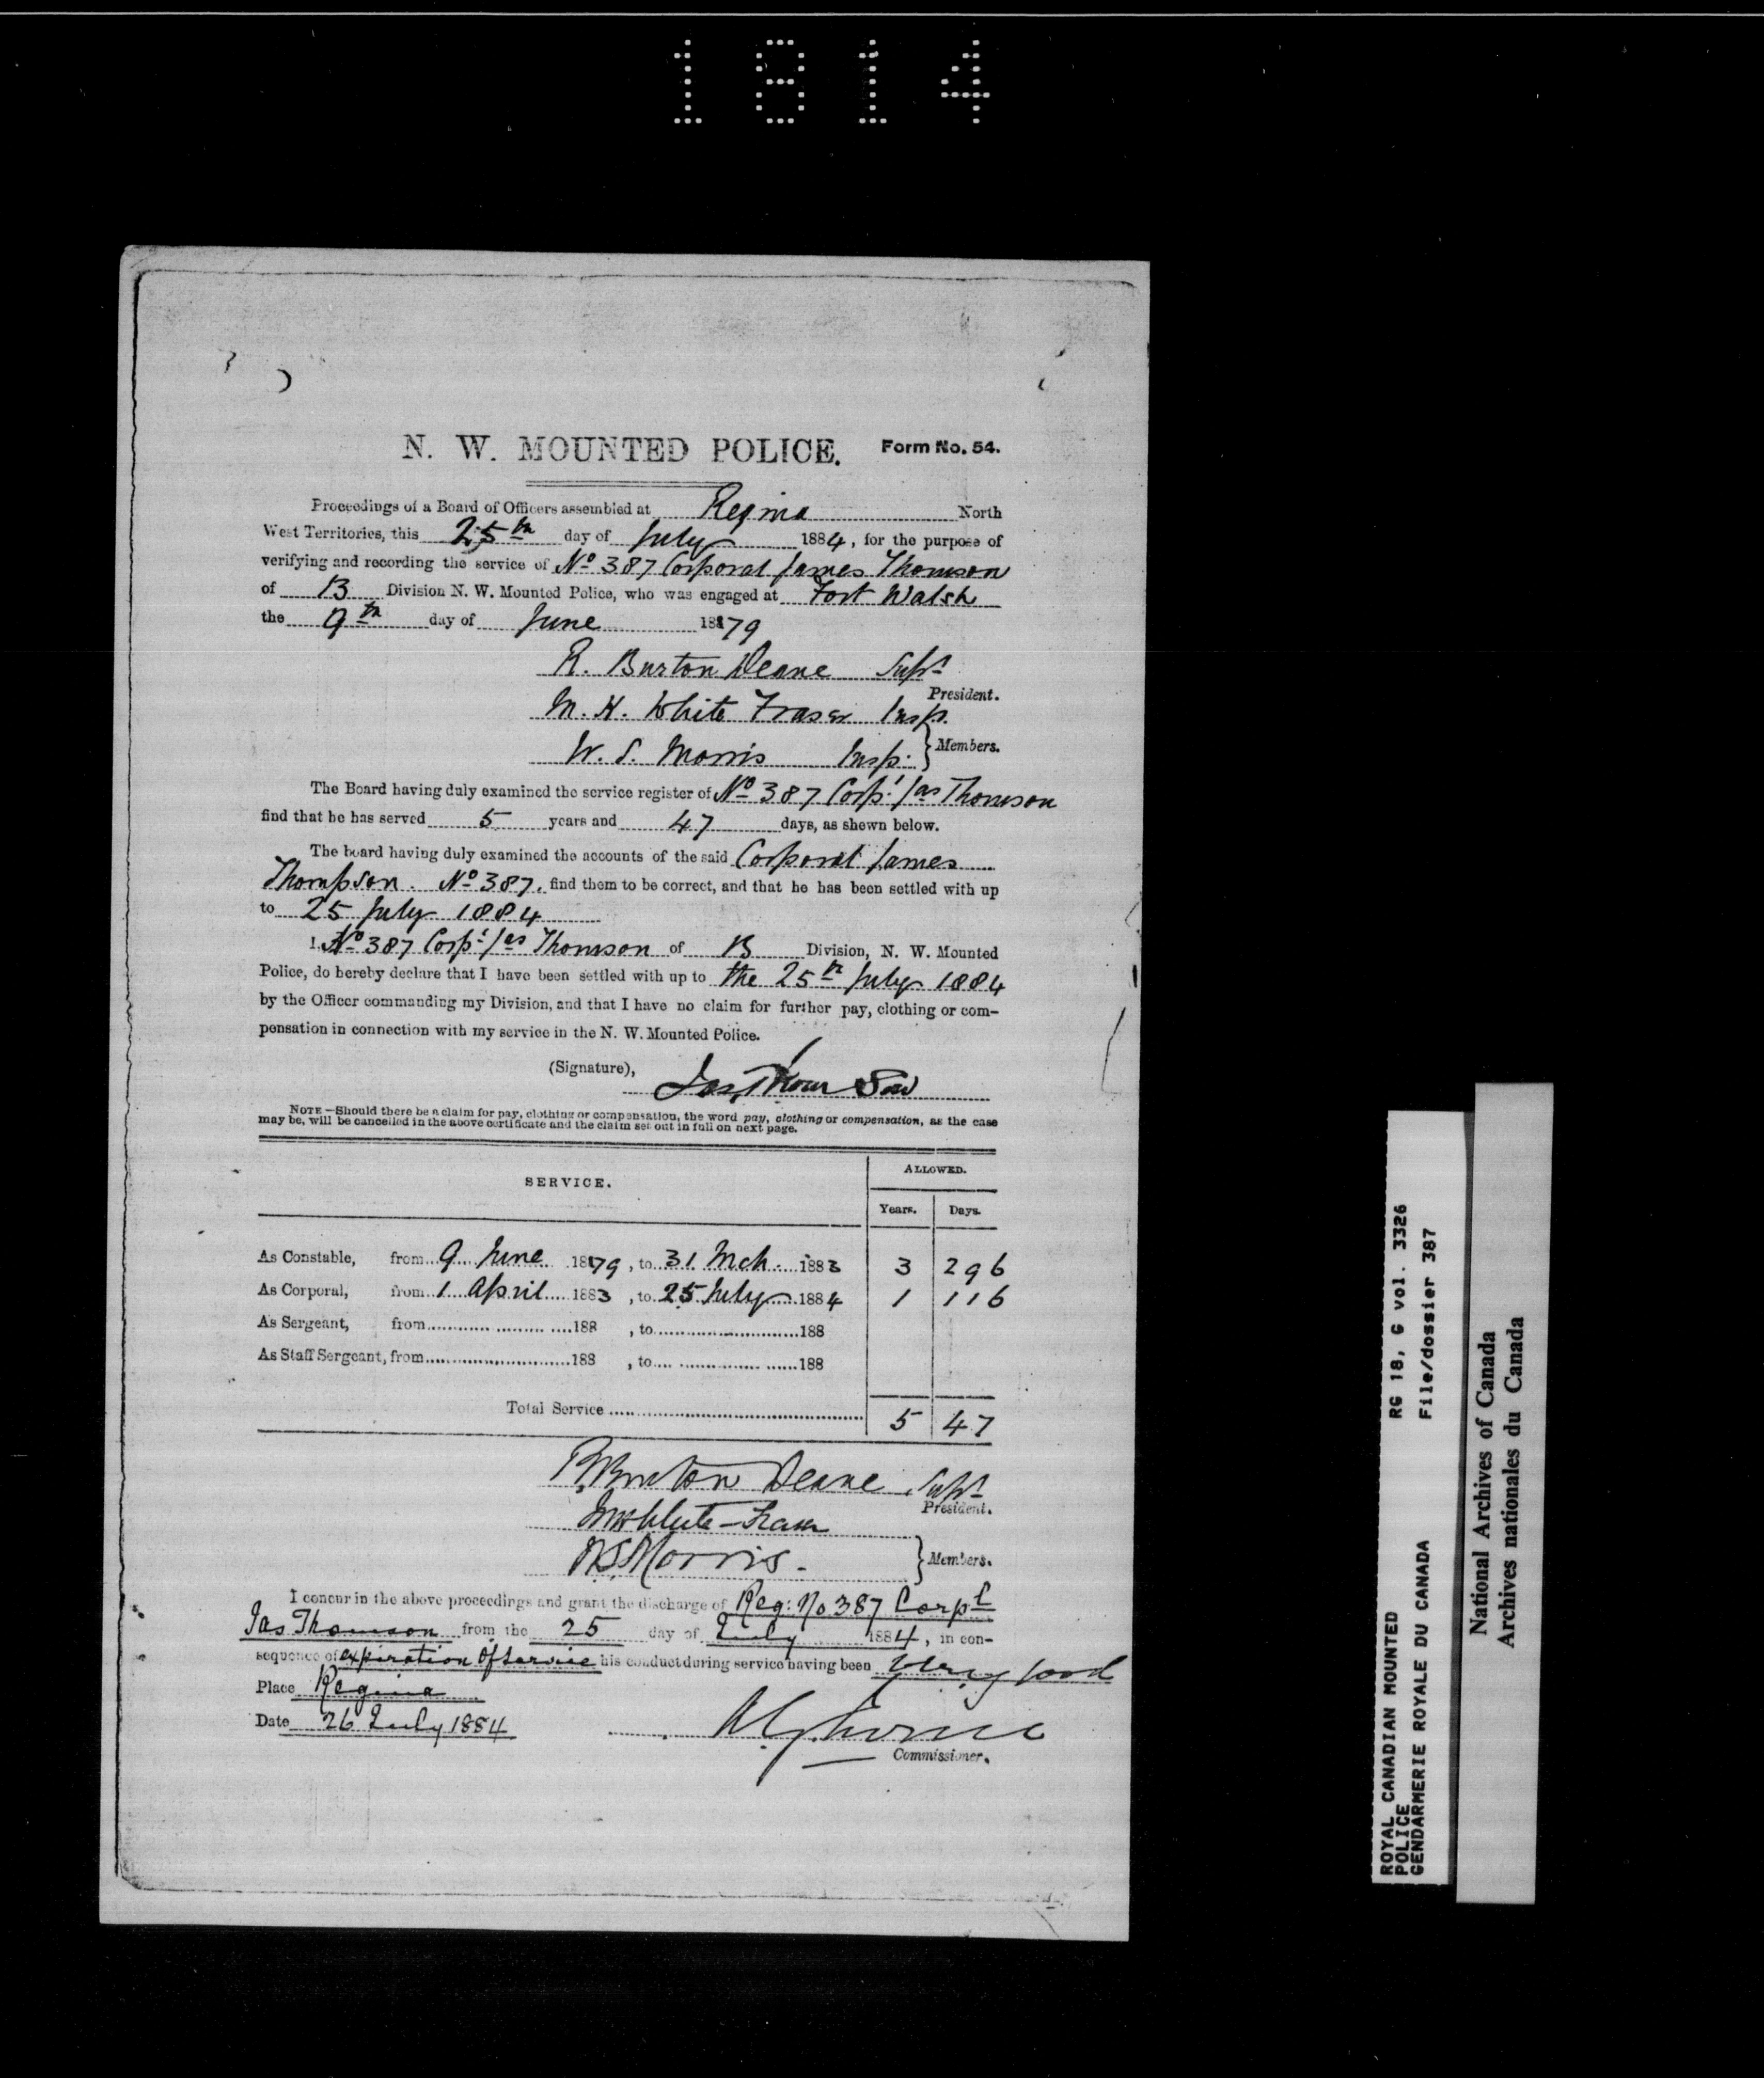 1814
N. W. MOUNTED POLICE. Form No. 54.
Proceedings of a Board of Officers assembled at Regina North
West Territories, this 25th day of July 1884, for the purpose of
verifying and recording the service of No 387 Corporal James Thomson
of B Division N. W. Mounted Police, who was engaged at Fort Walsh
the 9th day of June 1879
R. Burton Deane Supt
President.
M. H. White Fraser Insp.
W. S. Morris Insp. } Members.
The Board having duly examined the service register of No 387 Corpl Jas Thomson
find that he has served 5 years and 47 days, as shewn below.
The board having duly examined the accounts of the said Corporal James
Thompson. No 387. find them to be correct, and that he has been settled with up
to 25 July 1884
I. No 387 Corpl Jas Thomson of B Division, N. W. Mounted
Police, do hereby declare that I have been settled with up to the 25th July 1884
by the Officer commanding my Division, and that I have no claim for further pay, clothing or com-
pensation in connection with my service in the N. W. Mounted Police.
(Signature), Jas, Thomson
NOTE—Should there be a claim for pay, clothing or compensation, the word pay, clothing or compensation, as the case
may be, will be cancelled in the above certificate and the claim set out in full on next page.
SERVICE. ALLOWED.
Years. Days.
As Constable, from 9 June 1879, to 31 Mch. 1883 3 296
As Corporal, from 1 April 1883, to 25 July 1884 1 116
As Sergeant, from 188 , to 188
As Staff Sergeant, from 188 , to 188
Total Service 5 47
R Burton Deane Supt
President.
M H White-Fraser
W S Morris. } Members.
I concur in the above proceedings and grant the discharge of Reg: No 387 Corpl
Jas Thomson from the 25 day of July 1884, in con-
sequence of expiration of service his conduct during service having been Very good
Place Regina
Date 26 July 1884 A G Irvine
Commissioner.
ROYAL CANADIAN MOUNTED RG 18, G vol. 3326
POLICE
GENDARMERIE ROYALE DU CANADA File/dossier 387
National Archives of Canada
Archives nationales du Canada